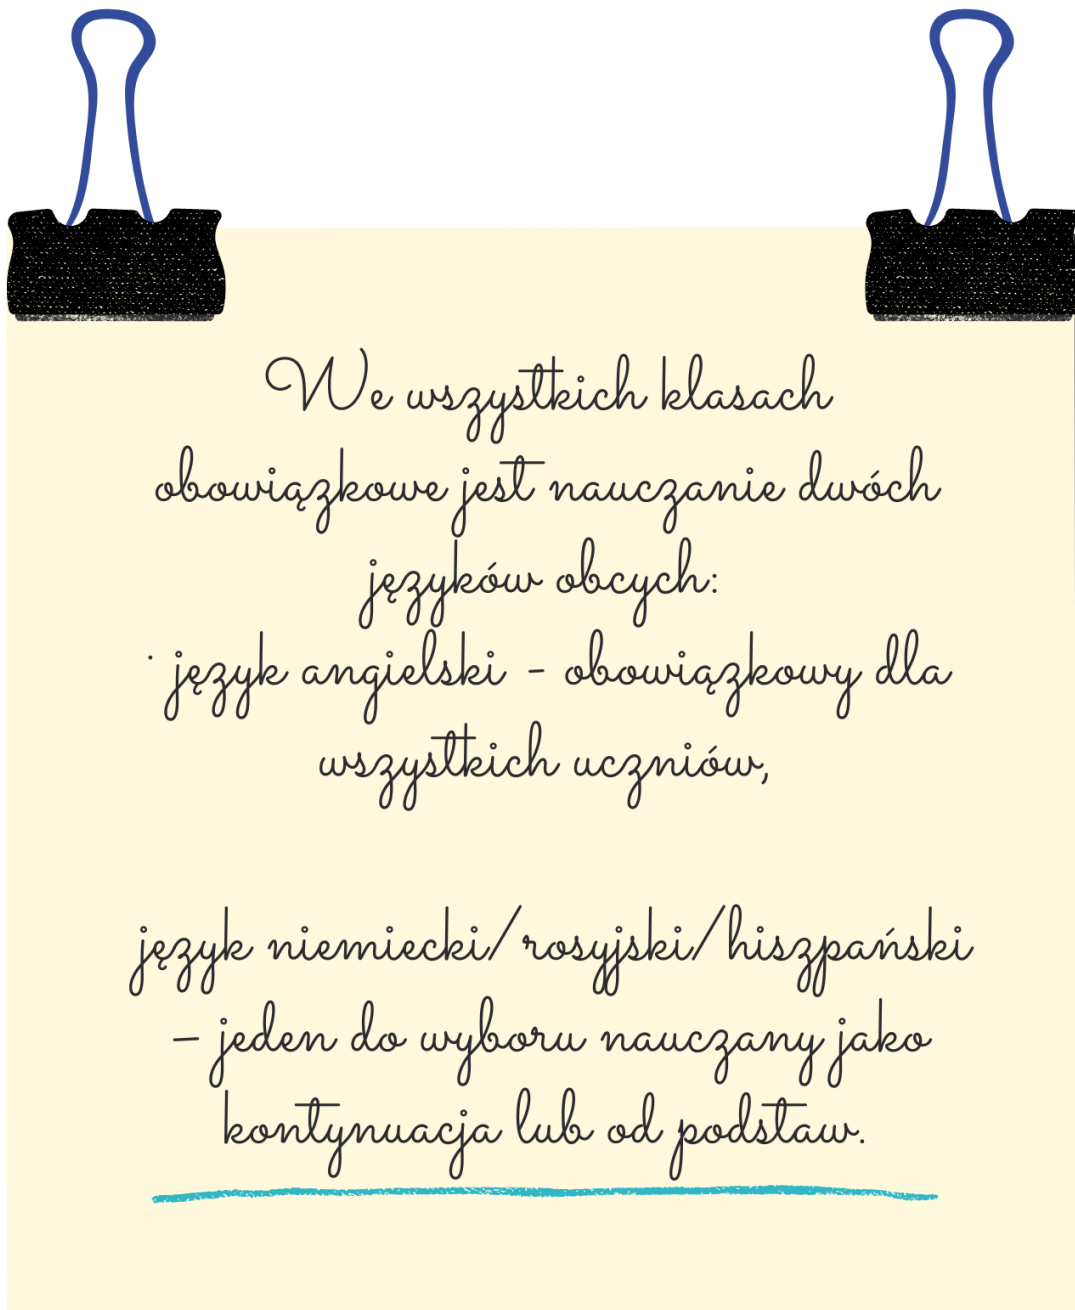 We wszystkich klasach
obowiązkowe jest nauczanie dwóch
języków obcych:
· język angielski - obowiązkowy dla
wszystkich uczniów,
język niemiecki/rosyjski/hiszpański
– jeden do wyboru nauczany jako
kontynuacja lub od podstaw.